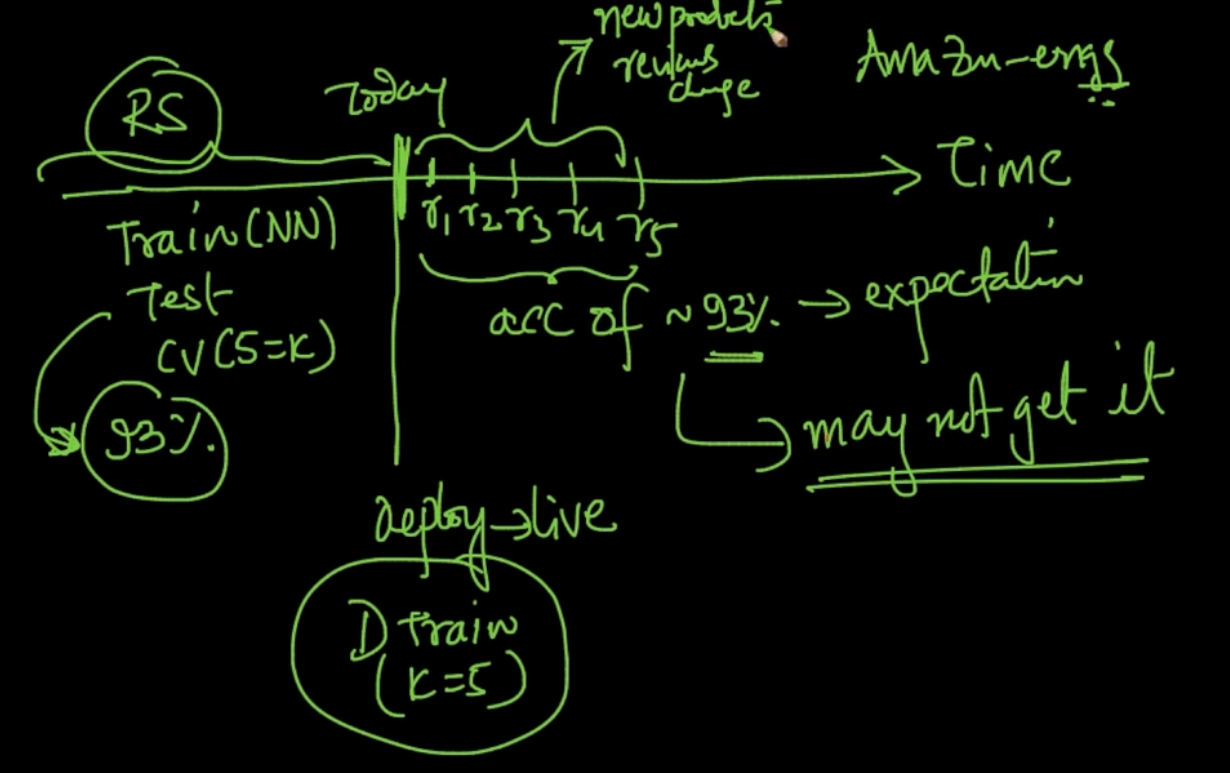 new products
reviews
change
Amazon-engs
RS
Today
Time
r1 r2 r3 r4 r5
Train (NN)
Test
CV (5=K)
93%.
acc of ~93%. → expectation
may not get it
Deploy → live
D Train
(K=5)